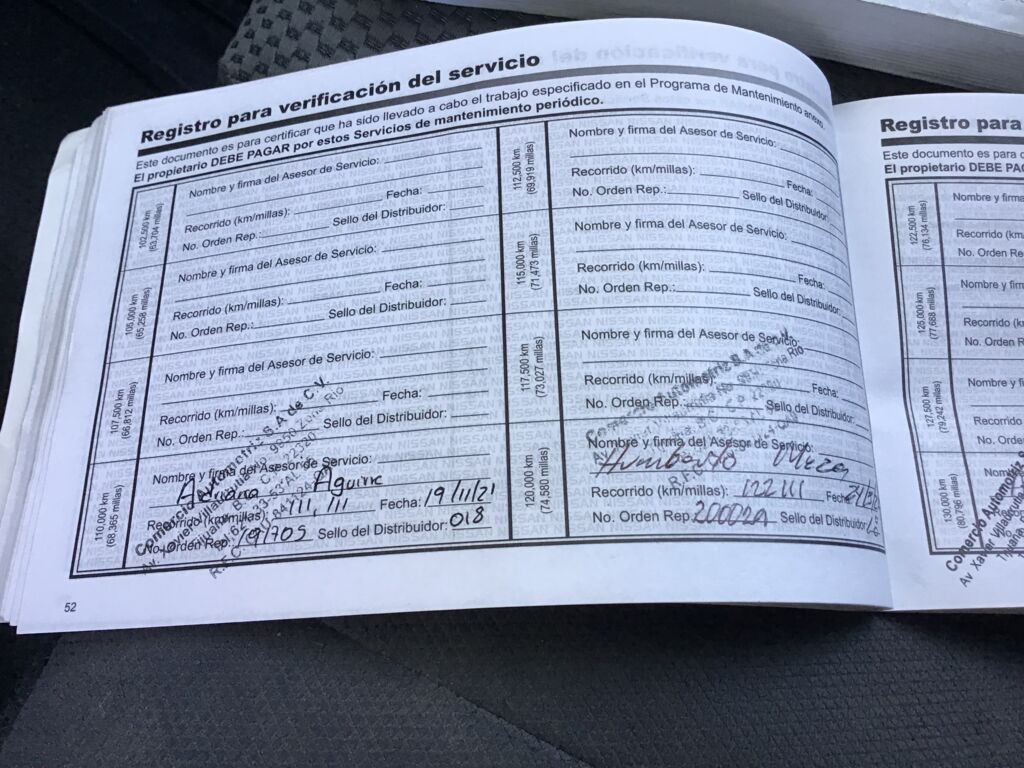 Registro para verificación del servicio
Este documento es para certificar que ha sido llevado a cabo el trabajo especificado en el Programa de Mantenimiento anexo.
El propietario DEBE PAGAR por estos Servicios de mantenimiento periódico.
102,500 km
(63,704 millas)
Nombre y firma del Asesor de Servicio:
Recorrido (km/millas): Fecha:
No. Orden Rep.: Sello del Distribuidor:
105,000 km
(65,258 millas)
Nombre y firma del Asesor de Servicio:
Recorrido (km/millas): Fecha:
No. Orden Rep.: Sello del Distribuidor:
107,500 km
(66,812 millas)
Nombre y firma del Asesor de Servicio:
Recorrido (km/millas): Fecha:
No. Orden Rep. Sello del Distribuidor:
110,000 km
(68,365 millas)
Nombre y firma del Asesor de Servicio:
Adriana Aguirre
Recorrido (km/millas) 111,111 Fecha: 19/11/21
No. Orden Rep. 191705 Sello del Distribuidor: 018
Comercio Automotriz S.A. de C.V.
112,500 km
(69,919 millas)
Nombre y firma del Asesor de Servicio:
Recorrido (km/millas): Fecha:
No. Orden Rep.: Sello del Distribuidor:
115,000 km
(71,473 millas)
Nombre y firma del Asesor de Servicio:
Recorrido (km/millas):
No. Orden Rep.: Sello del Distribuidor:
117,500 km
(73,027 millas)
Nombre y firma del Asesor de Servicio:
Recorrido (km/millas): Fecha:
No. Orden Rep. Sello del Distribuidor:
120,000 km
(74,580 millas)
Nombre y firma del Asesor de Servicio:
Humberto
Recorrido (km/millas): 122111
No. Orden Rep. 20002A Sello del Distribuidor:
52
Registro para
Este documento es para
El propietario DEBE
122,500 km
(76,134 millas)
Nombre
Recorrido
No. Orden
125,000 km
(77,688 millas)
Nombre
Recorrido
No. Orden
127,500 km
(79,242 millas)
Nombre y
Recorrido
No. Orden
130,000 km
Comercio Automotriz